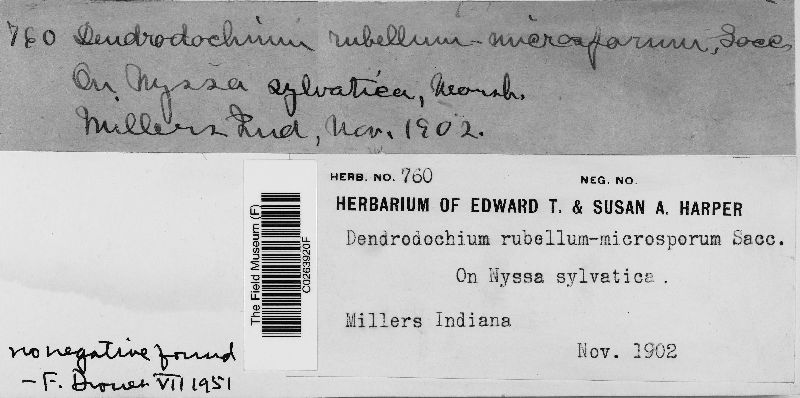 760 Dendrodochium rubellum-microsporum, Sacc.
On Nyssa sylvatica, Marsh.
Millers Ind, Nov. 1902.
HERB. NO. 760 NEG. NO.
HERBARIUM OF EDWARD T. & SUSAN A. HARPER
Dendrodochium rubellum-microsporum Sacc.
On Nyssa sylvatica.
Millers Indiana
Nov. 1902
The Field Museum (F)
C0263920F
no negative found
— F. Drouet VII 1951